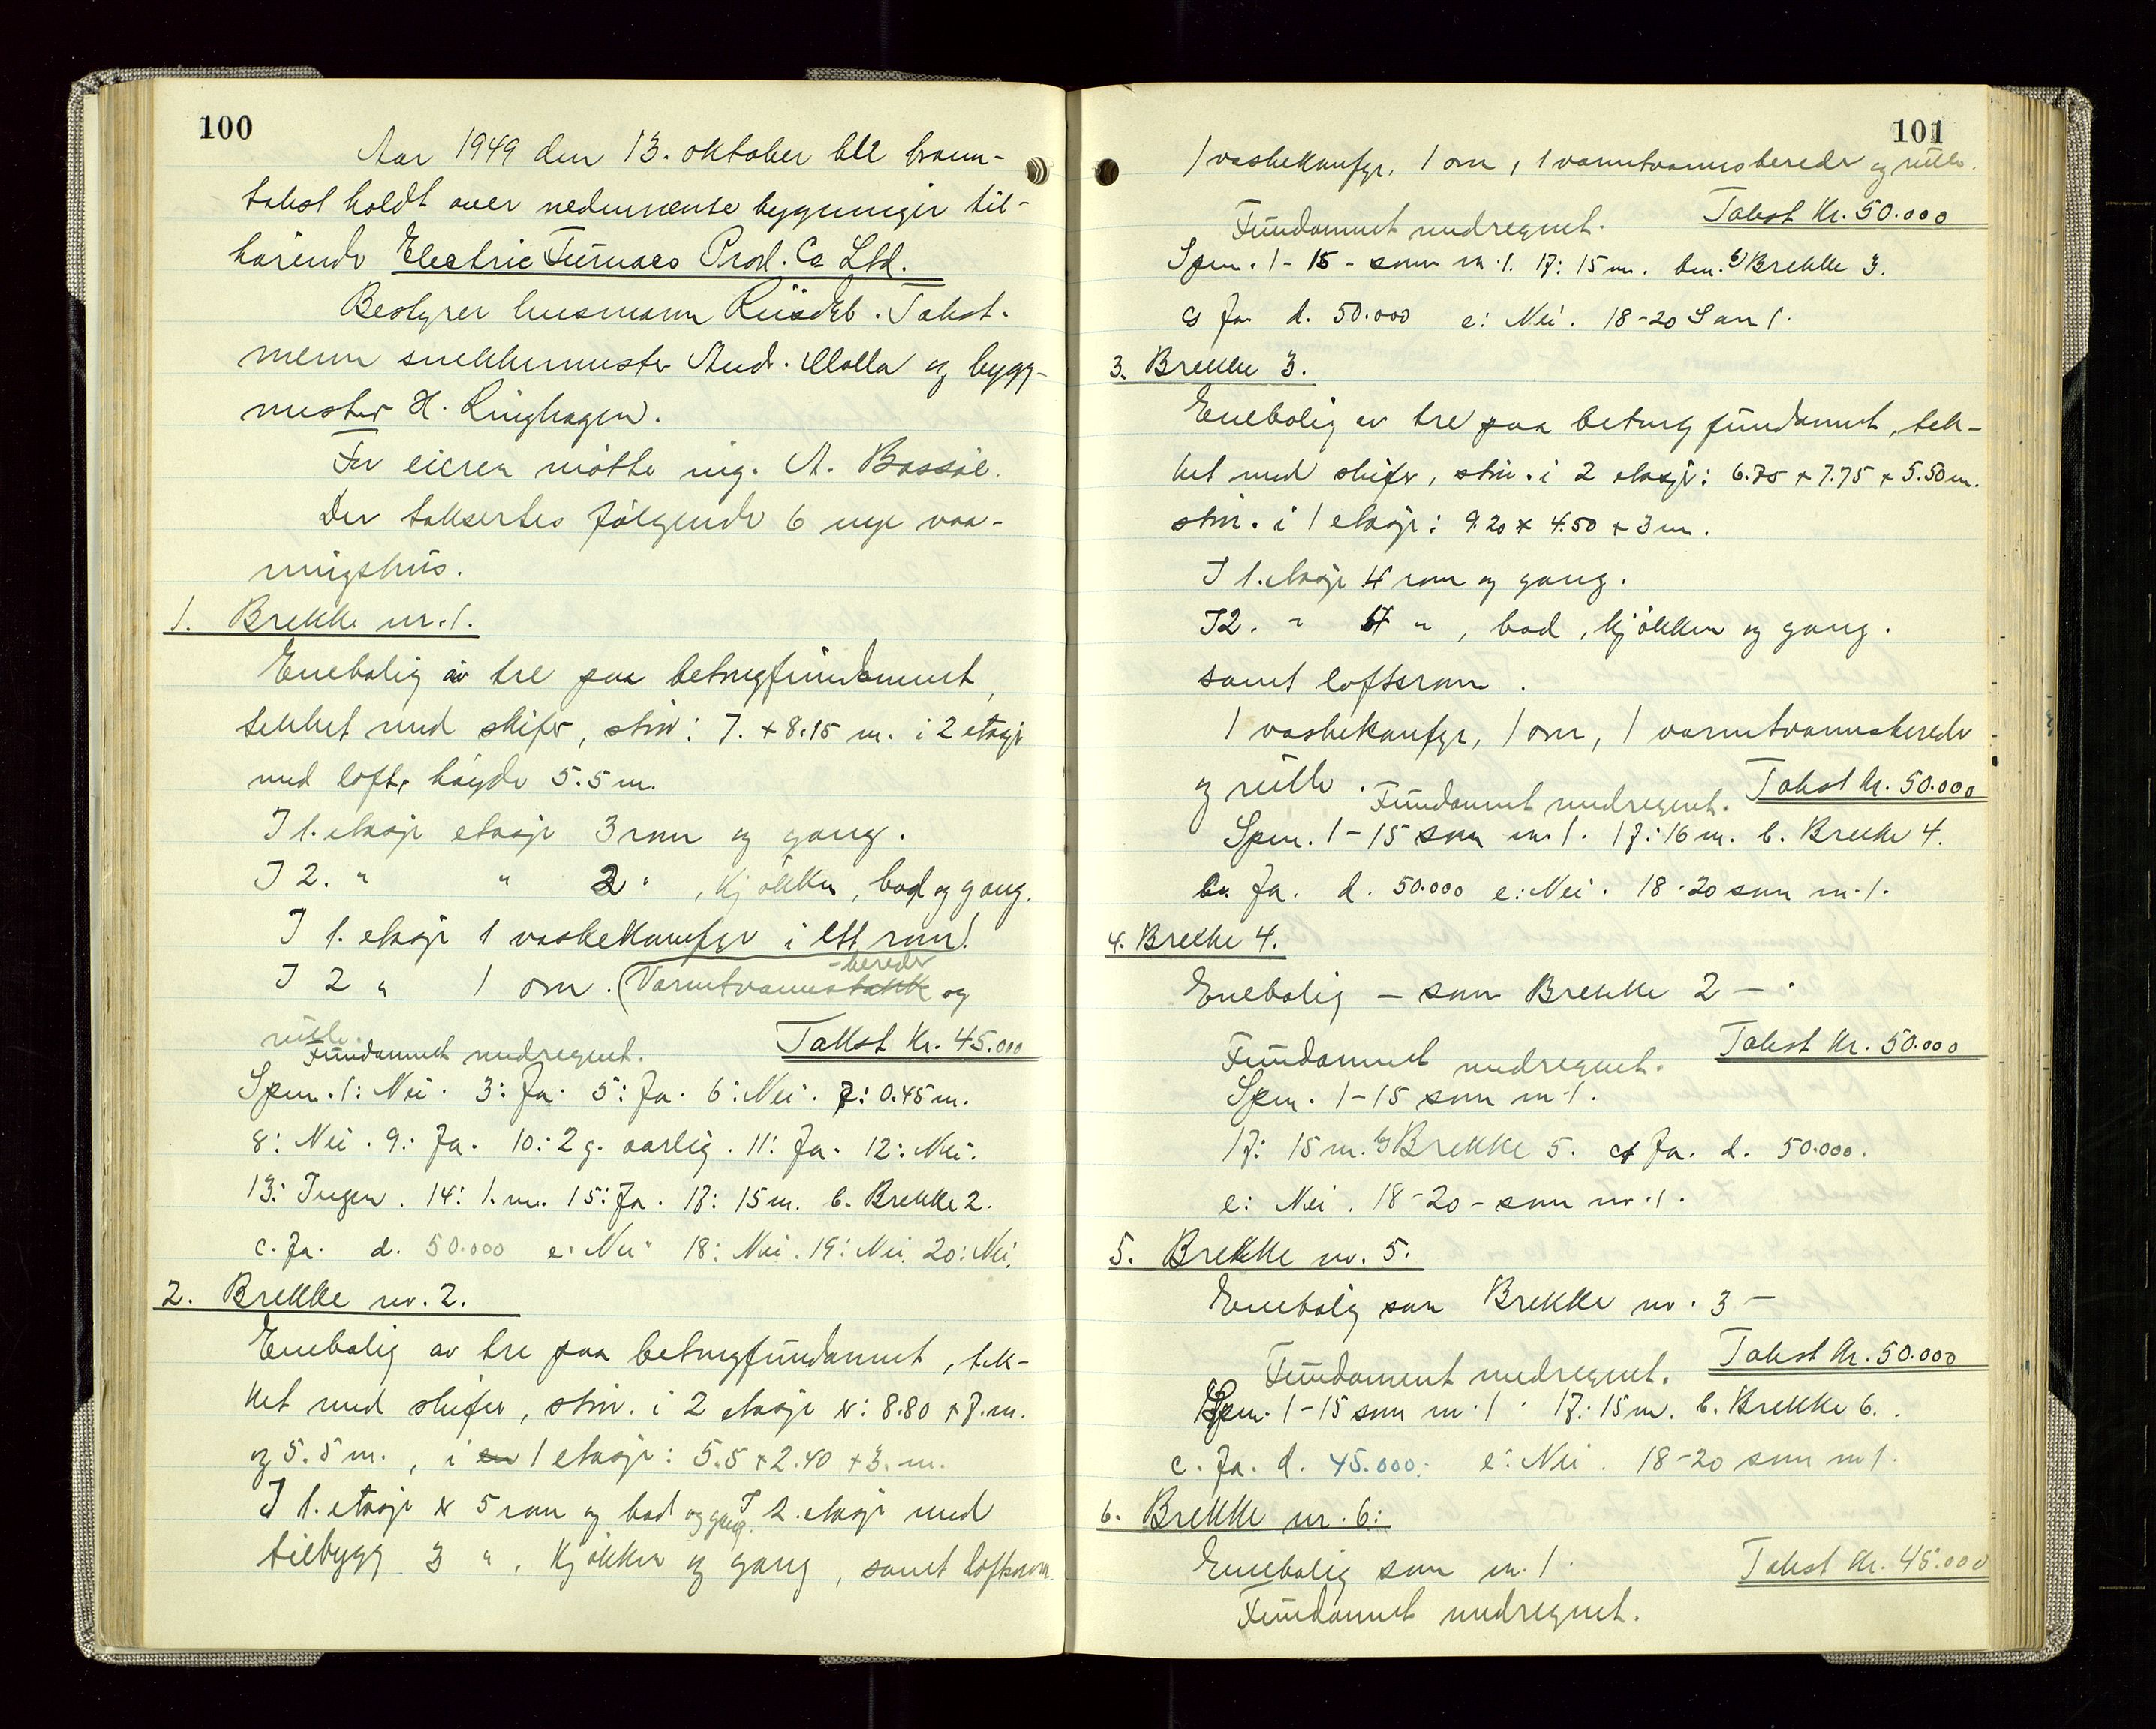 100
Aar 1949 den 13. oktober ble brann-
takst holdt over nedennevnte bygninger til-
hørende Electric Furnace Prod. Co Ltd.
Bestyrer husmann. Takst-
menn snekkermester And. Molla og bygg-
mester H. Ringhagen.
For eieren møtte ing. A. Bassøe.
Der taksertes følgende 6 nye vaa-
ningshus.
1. Brekke nr. 1.
Enebolig av tre paa betongfundament,
tekket med skifer, stør: 7. x 8.15 m. i 2 etasje
med loft, høyde 5.5 m.
I 1. etasje etasje 3 rom og gang.
I 2. " " 2 " , kjøkken, bad og gang.
I 1. etasje 1 vaskekamfyr i ett rom.
I 2 " 1 ovn. (Varmtvannstank -bereder og
rulle.
Fundament medregnet. Takst Kr. 45.000
Spm. 1: Nei. 3: Ja. 5: Ja. 6: Nei. 7: 0.45 m.
8: Nei. 9: Ja. 10: 2 g. aarlig. 11: Ja. 12: Nei.
13: Ingen. 14: 1. m. 15: Ja. 17: 15 m. b. Brekke 2.
c. Ja. d. 50.000 e: Nei. 18: Nei. 19: Nei. 20: Nei.
2. Brekke nr. 2.
Enebolig av tre paa betongfundament, tek-
ket med skifer, stør. i 2 etasje er: 8.80 x 7. m.
og 5.5 m., i en 1 etasje: 5.5 x 2.40 x 3. m.
I 1. etasje er 5 rom og bad og gang. I 2. etasje med
tilbygg 3 " , kjøkken og gang, samt loftsrom
101
1 vaskekamfyr, 1 ovn, 1 varmtvannsbereder og rulle.
Fundament medregnet. Takst Kr. 50.000
Spm. 1-15 - som nr. 1. 17: 15 m. b) Brekke 3.
c) Ja d. 50.000 e: Nei. 18-20 Som 1.
3. Brekke 3.
Enebolig av tre paa betongfundament, tek-
ket med skifer, stør. i 2 etasje: 6.75 x 7.75 x 5.50 m.
stør. i 1 etasje: 9.20 x 4.50 x 3 m.
I 1. etasje 4 rom og gang.
I 2. " 4 " , bad, kjøkken og gang.
samt loftsrom.
1 vaskekamfyr, 1 ovn, 1 varmtvannsbereder
og rulle. Fundament medregnet. Takst Kr. 50.000
Spm. 1-15 som nr. 1. 17: 16 m. b. Brekke 4.
Ja. d. 50.000 e: Nei. 18-20 som nr. 1.
4. Brekke 4.
Enebolig - som Brekke 2 -.
Fundament medregnet. Takst Kr. 50.000
Spm. 1-15 som nr 1.
17: 15 m. b) Brekke 5. c) Ja. d. 50.000.
e: Nei. 18-20 - som nr. 1.
5. Brekke nr. 5.
Enebolig som Brekke nr. 3 -
Fundament medregnet. Takst Kr. 50.000
Spm. 1-15 som nr. 1. 17: 15 m. b. Brekke 6.
c. Ja. d. 45.000.- e: Nei. 18-20 som nr 1.
6. Brekke nr. 6:
Enebolig som nr. 1. Takst Kr. 45.000
Fundament medregnet.